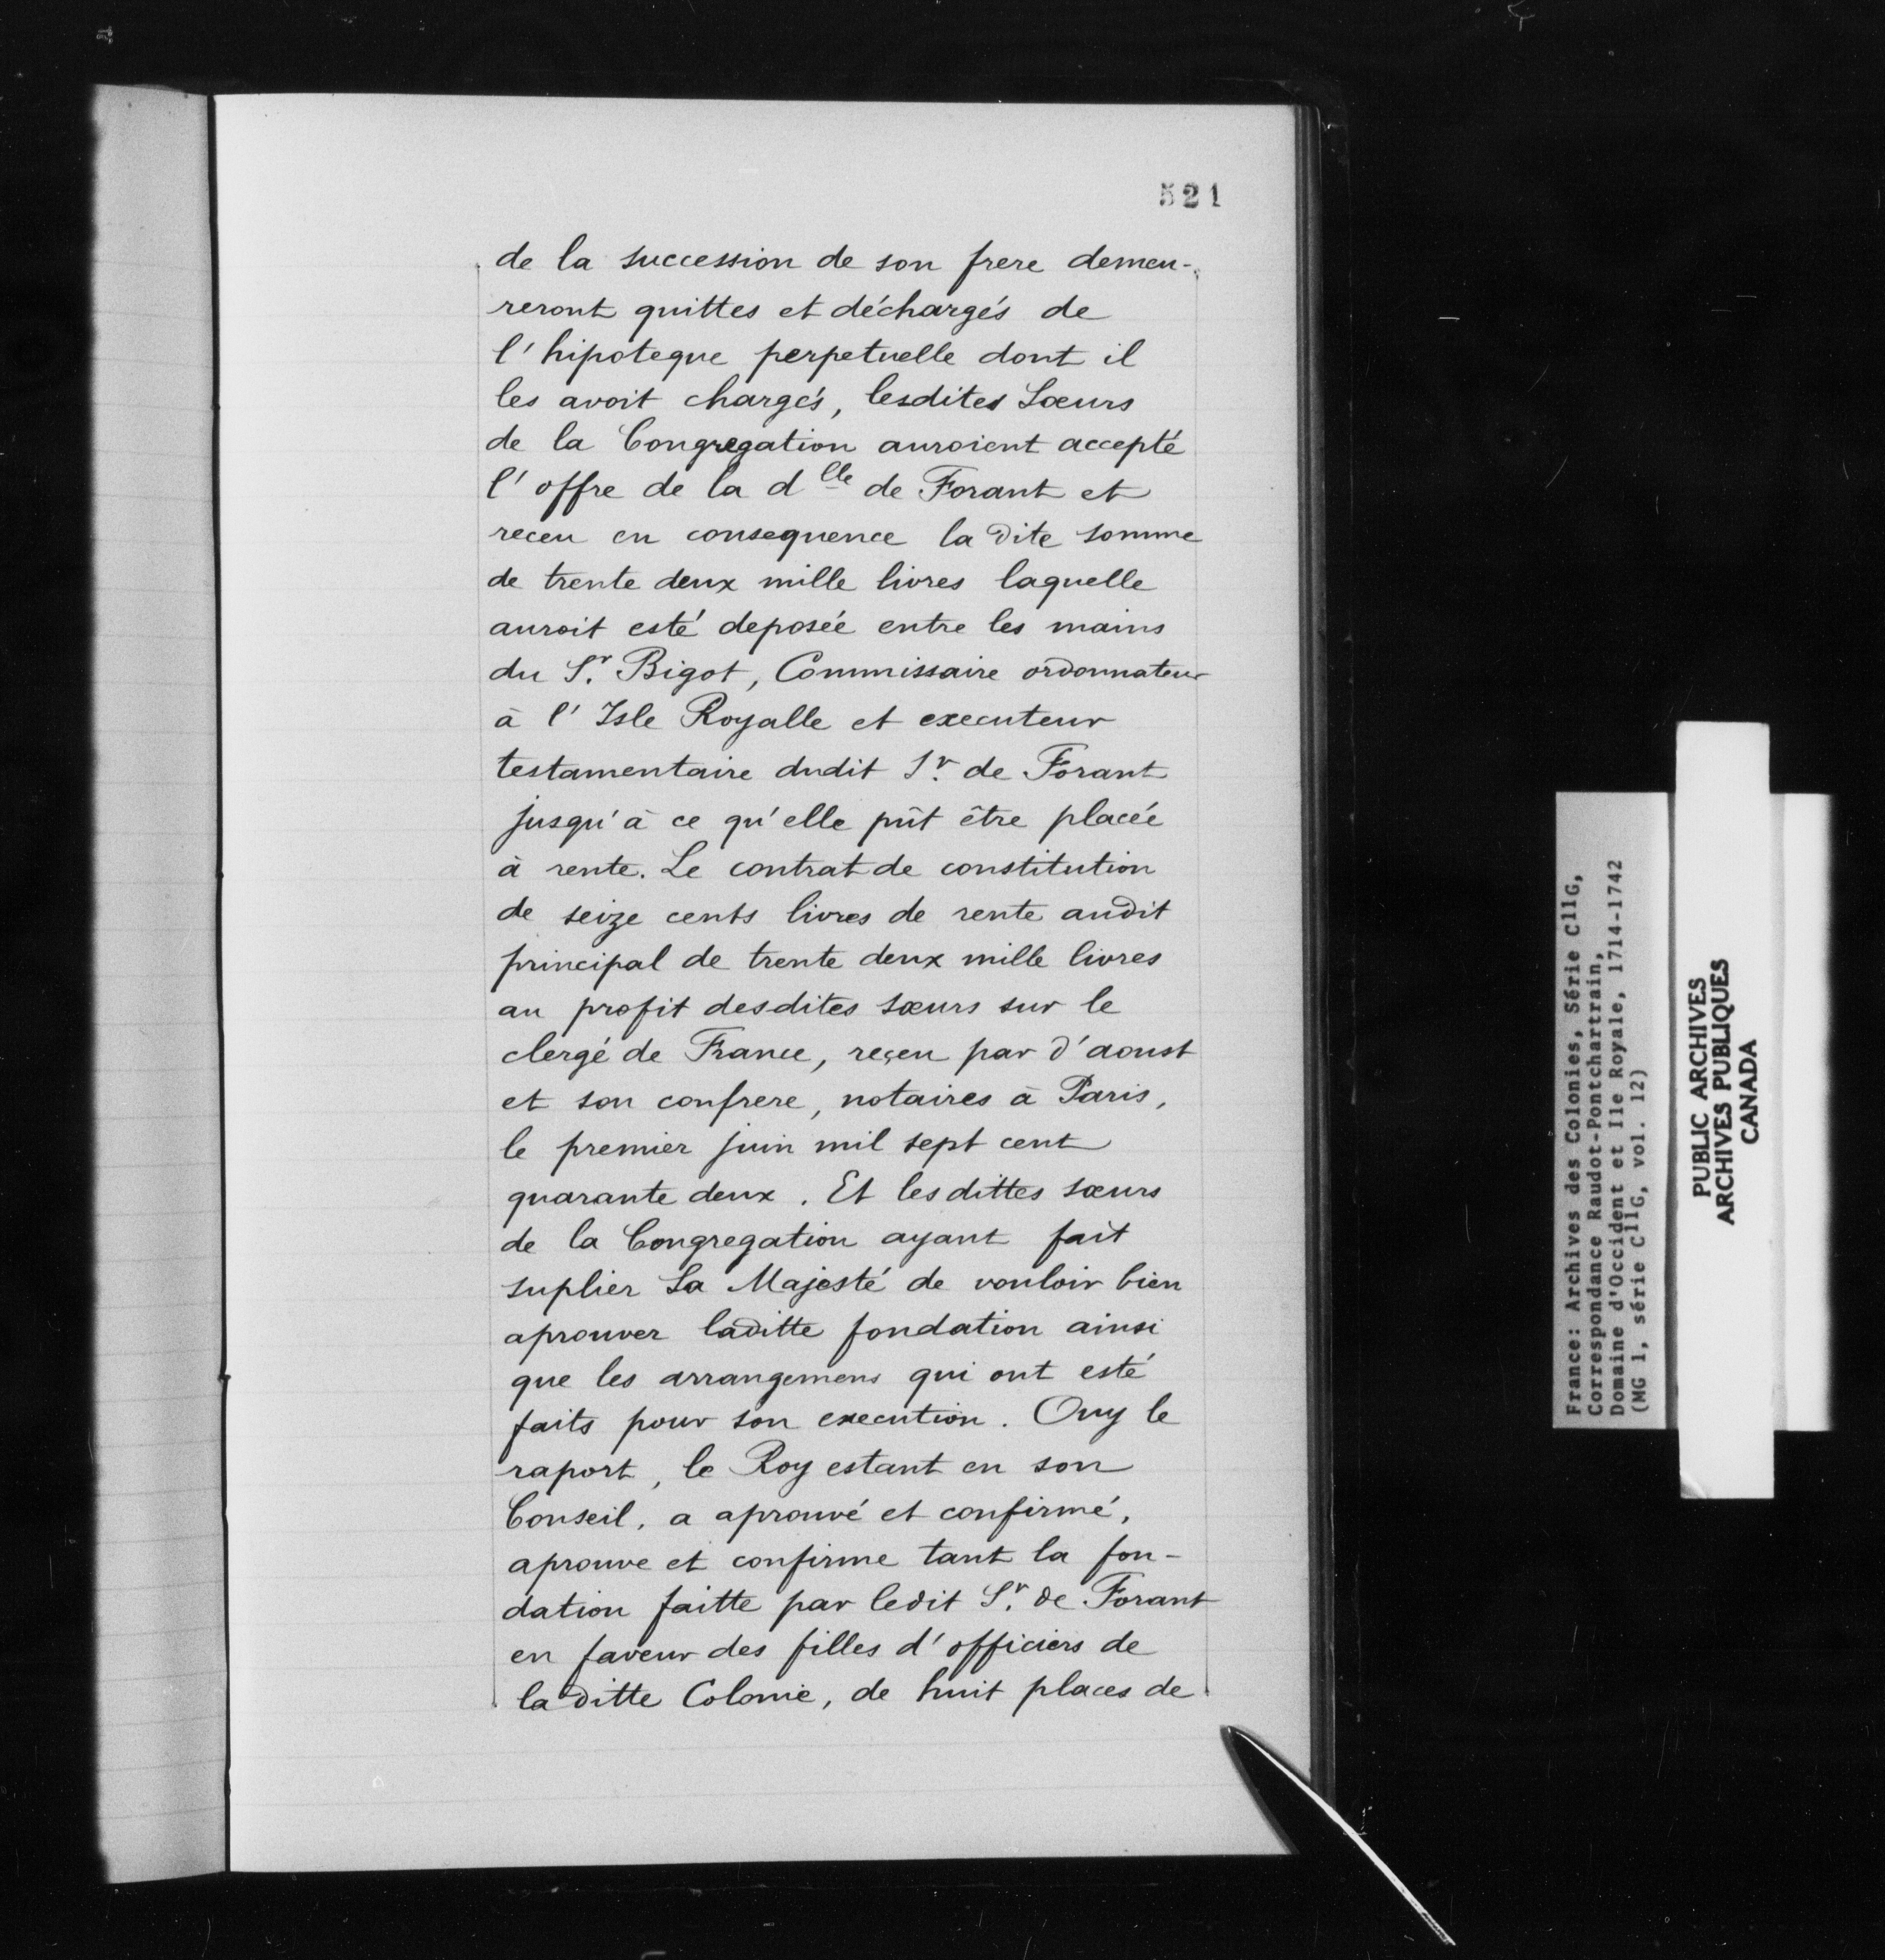 521
de la succession de son frere demeu-
reront quittes et déchargés de
l'hipoteque perpetuelle dont il
les avoit chargés, lesdites Sœurs
de la Congregation auroient accepté
l'offre de la d lle de Forant et
receu en consequence la dite somme
de trente deux mille livres laquelle
auroit esté deposée entre les mains
du Sr. Bigot, Commissaire ordonnateur
à l'Isle Royalle et executeur
testamentaire dudit Sr. de Forant
jusqu'à ce qu'elle pût être placée
à rente. Le contrat de constitution
de seize cents livres de rente audit
principal de trente deux mille livres
au profit desdites sœurs sur le
clergé de France, reçeu par d'aoust
et son confrere, notaires à Paris,
le premier juin mil sept cent
quarante deux. Et lesdittes sœurs
de la Congregation ayant fait
suplier Sa Majesté de vouloir bien
aprouver laditte fondation ainsi
que les arrangemens qui ont esté
faits pour son execution. Ouy le
raport, le Roy estant en son
Conseil, a aprouvé et confirmé,
aprouve et confirme tant la fon-
dation faitte par ledit Sr. de Forant
en faveur des filles d'officiers de
laditte Colonie, de huit places de
France: Archives des Colonies, Série C11G,
Correspondance Raudot-Pontchartrain,
Domaine d'Occident et Ile Royale, 1714-1742
(MG 1, série C11G, vol. 12)
PUBLIC ARCHIVES
ARCHIVES PUBLIQUES
CANADA